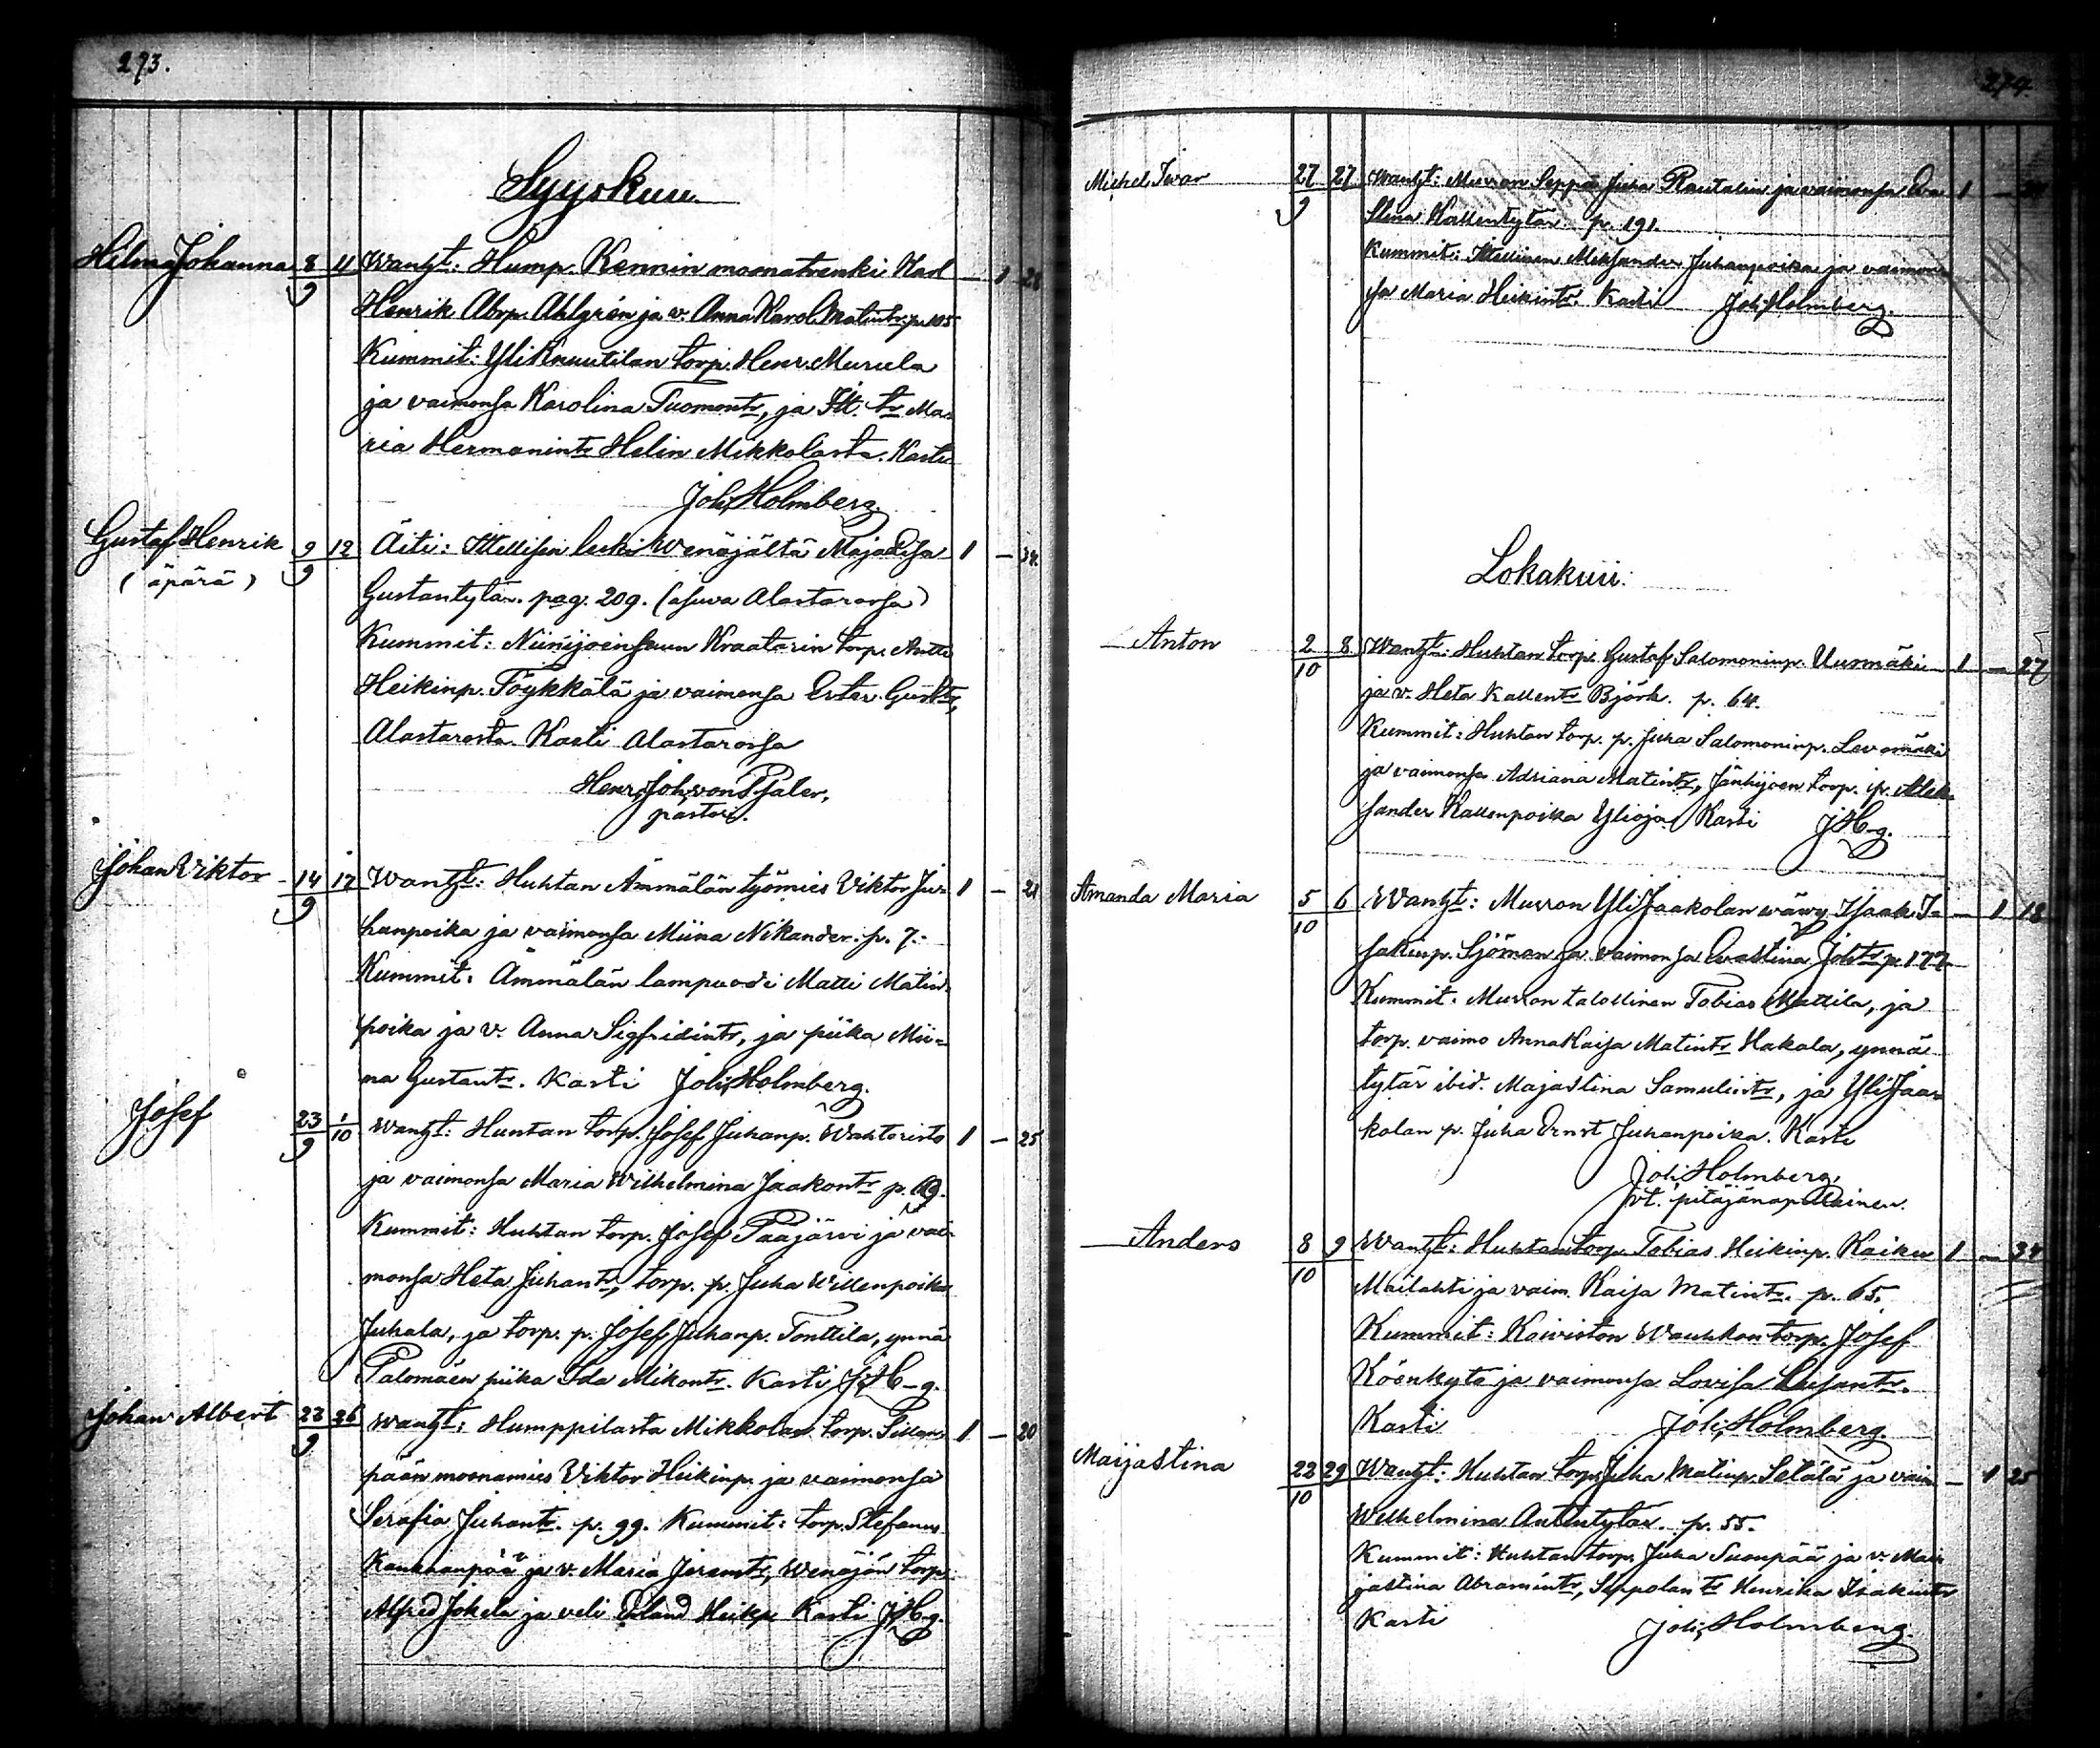 273.
Syyskuu
Hilma Johanna 8/9 11 Wanht: Hump. Kennin moonatrenki Karl — 1 28
Henrik Abrp. Ahlgrén ja v. Anna Karol. Matintr. p. 105
Kummit: YliKnuutilan torp. Henr. Murula
ja vaimonsa Karolina Tuomontr, ja Itt. tr Ma-
ria Hermanintr Helin Mikkolasta. Kasti
Joh. Holmberg.
Gustaf Henrik 9/9 12 Äiti: Itellisen leski Wenäjältä Maja Lisa 1 — 34.
(äpärä) Gustantytär. pag. 209. (asuva Alastarossa)
Kummit: Niinijoensuun Kraatarin torp. Antti
Heikinp. Töykkälä ja vaimonsa Ester Gusttr,
Alastarosta. Kasti Alastarossa
Henr. Joh. von Pfaler,
pastori.
Johan Viktor 14/9 17 Wanht: Huhtan Ämmälän työmies Viktor Ju- 1 — 21
hanpoika ja vaimonsa Miina Nikander. p. 7.
Kummit: Ämmälän lampuodi Matti Matin-
poika ja v. Anna Sigfridintr, ja piika Mii-
na Gustantr. Kasti Joh. Holmberg.
Josef 23/9 1/10 Wanht: Huhtan torp. Josef Juhanp. Wahteristo 1 — 25
ja vaimonsa Maria Wilhelmina Jaakontr p. 69.
Kummit: Huhtan torp. Josef Pääjärvi ja vai-
monsa Heta Juhantr, torp. p. Juha Willenpoika
Juhala, ja torp. p. Josef Juhanp. Tonttila, ynnä
Palomäen piika Ida Mikontr. Kasti J. H-g.
Johan Albert 22/9 26 Wanht: Humppilasta Mikkolan torp. Sillan- 1 — 20
pään moonamies Viktor Heikinp. ja vaimonsa
Serafia Juhantr. p. 99. Kummit: torp. Stefanus
Kankaanpää ja v. Maria Jeremtr, Wenäjän torp.
Alfred Jokela ja veli Erland Heikp. Kasti J. H-g.
274.
Michel Ivar 27/9 27 Wanht: Murron Seppä Juha Rautalin ja vaimonsa Eva 1 —
Stina Kallentytär. p. 191.
Kummit: Itellinen Aleksander Juhanpoika ja vaimon-
sa Maria Heikintr. Kasti Joh. Holmberg.
Lokakuu.
Anton 2/10 8 Wanht: Huhtan torp. Gustaf Salomoninp. Uusmäki 1 — 27
ja v. Heta Kallentr Björk. p. 64.
Kummit: Huhtan torp. p. Juha Salomoninp. Levomäki
ja vaimonsa Adriana Matintr, Jänhijoen torp. p. Alek-
sander Kallenpoika Ylioja. Kasti J. H-g.
Amanda Maria 5/10 6 Wanht: Murron YliJaakolan wäwy Isaak I- — 1 18
sakinp. Sjöman ja vaimonsa Evastina Johtr p. 177
Kummit: Murron talollinen Tobias Mattila, ja
torp. vaimo Anna Kaisa Matintr Hakala, ynnä
tytär ibid. Majastina Samulintr, ja YliJaa-
kolan p. Juha Ernst Juhanpoika. Kasti
Joh. Holmberg,
vt. pitäjänapulainen.
Anders 8/10 9 Wanht: Huhtan torp. Tobias Heikinp. Kaiku 1 — 34
Mailahti ja vaim. Kaisa Matintr. p. 65.
Kummit: Koiviston Wauhkon torp. Josef
Köönkytä ja vaimonsa Lovisa
Kasti Joh. Holmberg.
Maijastina 22/10 29 Wanht: Huhtan torp. Juha Matinp. Setälä ja vaim. — 1 25
Wilhelmina Antintytär. p. 55.
Kummit: Huhtan torp. Juha Suonpää ja v. Mai-
jastina Abramintr, Seppolan tr Henrika Isakintr
Kasti Joh. Holmberg.